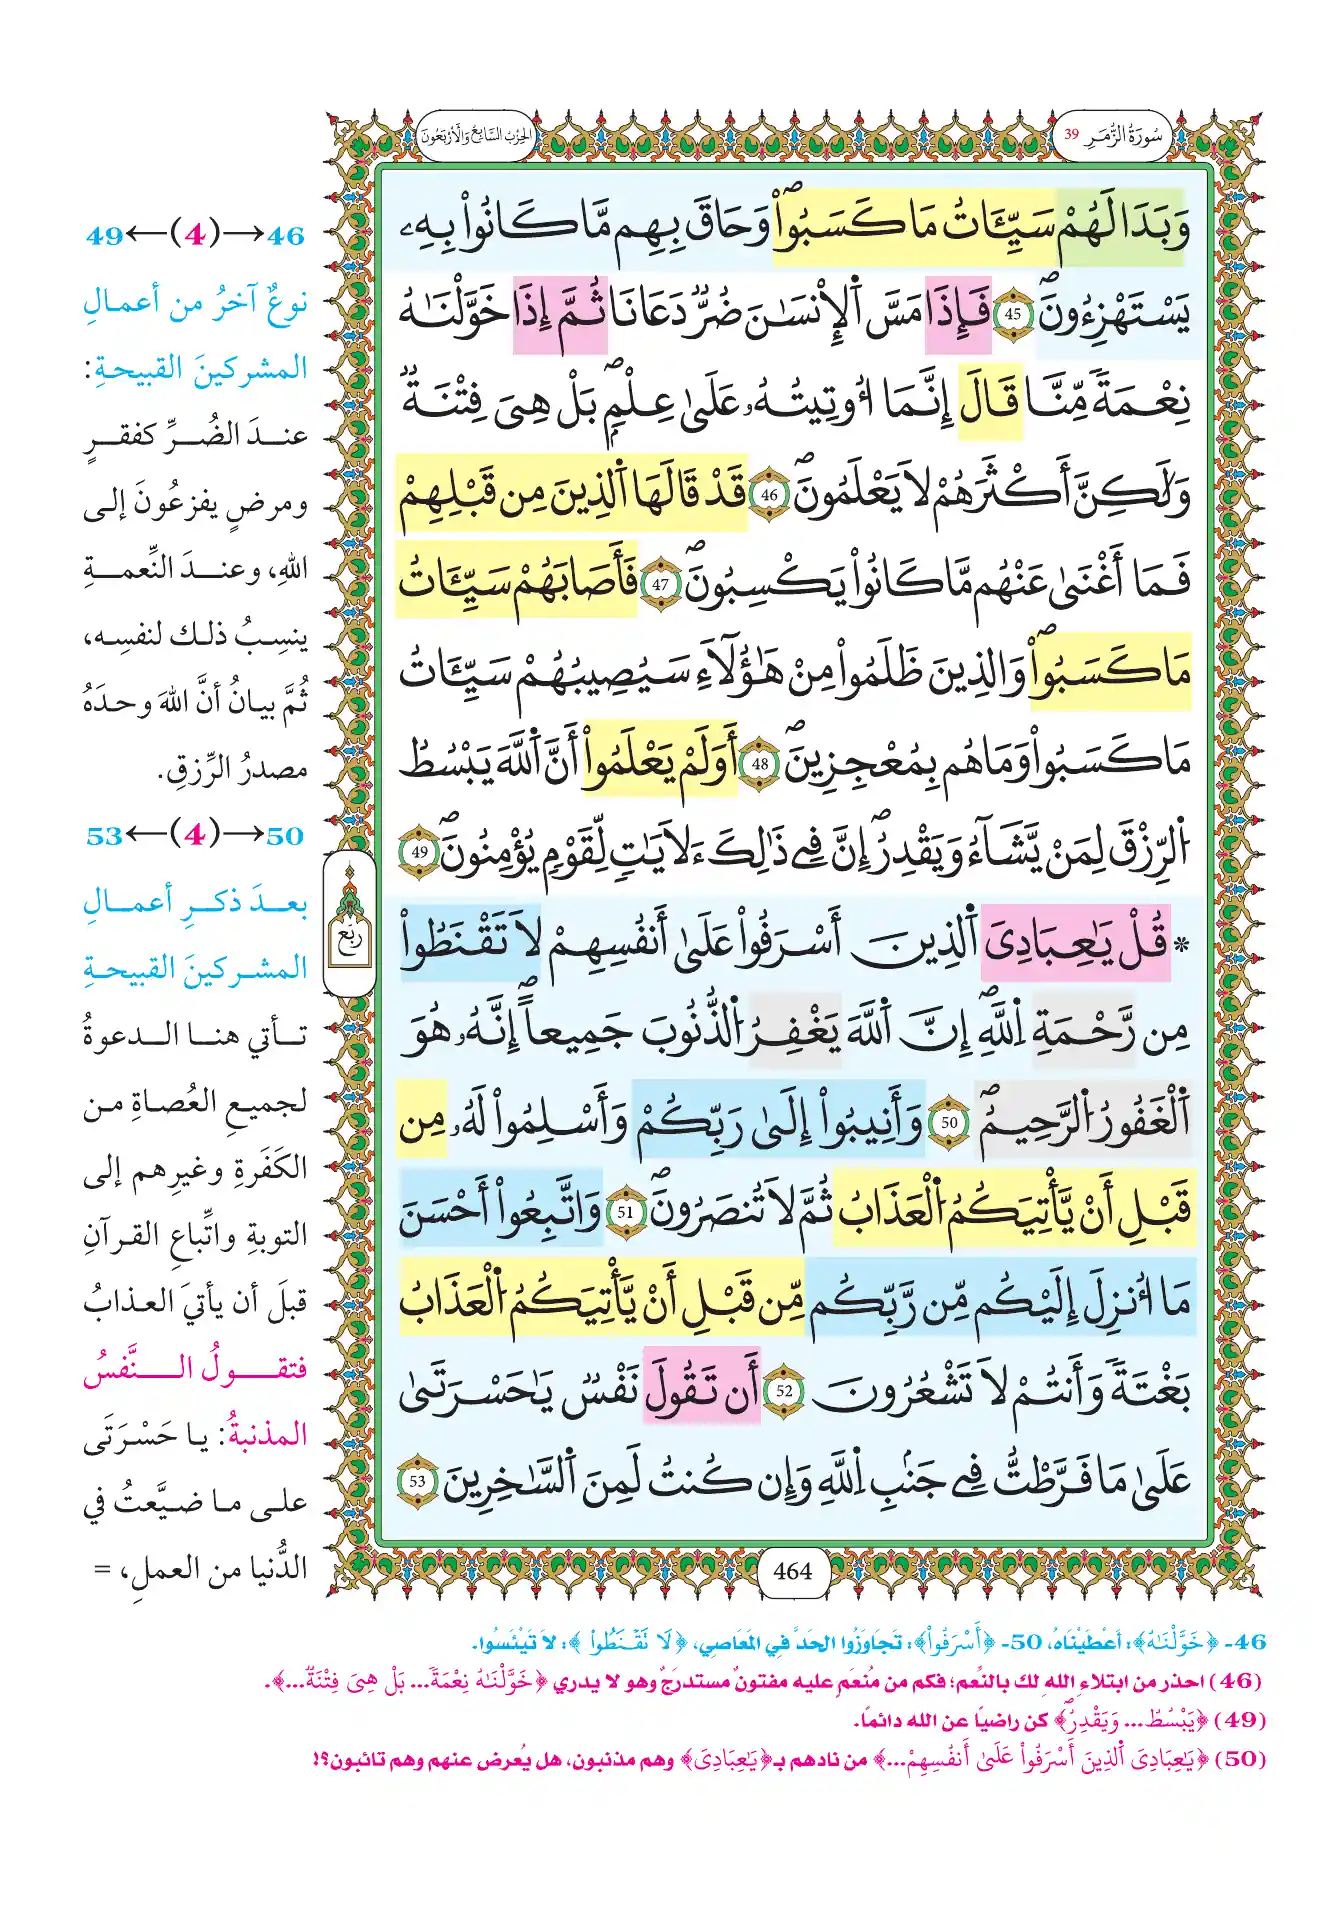 سُورَةُ الزُّمَرِ 39
الحِزْبُ السَّابِعُ وَالأَرْبَعُونَ
وَبَدَا لَهُمْ سَيِّـَٔاتُ مَا كَسَبُواْ وَحَاقَ بِهِم مَّا كَانُواْ بِهِۦ
يَسْتَهْزِءُونَ 45 فَإِذَا مَسَّ اَلْإِنسَٰنَ ضُرٌّ دَعَانَا ثُمَّ إِذَا خَوَّلْنَٰهُ
نِعْمَةً مِّنَّا قَالَ إِنَّمَا أُوتِيتُهُۥ عَلَىٰ عِلْمٍ بَلْ هِيَ فِتْنَةٌ
وَلَٰكِنَّ أَكْثَرَهُمْ لَا يَعْلَمُونَ 46 قَدْ قَالَهَا اَلذِينَ مِن قَبْلِهِمْ
فَمَا أَغْنَىٰ عَنْهُم مَّا كَانُواْ يَكْسِبُونَ 47 فَأَصَابَهُمْ سَيِّـَٔاتُ
مَا كَسَبُواْ وَالذِينَ ظَلَمُواْ مِنْ هَٰؤُلَآءِ سَيُصِيبُهُمْ سَيِّـَٔاتُ
مَا كَسَبُواْ وَمَا هُم بِمُعْجِزِينَ 48 أَوَلَمْ يَعْلَمُواْ أَنَّ اَللَّهَ يَبْسُطُ
اُلرِّزْقَ لِمَنْ يَّشَآءُ وَيَقْدِرُ إِنَّ فِي ذَٰلِكَ ءَلَايَٰتٍ لِّقَوْمٍ يُؤْمِنُونَ 49
* قُلْ يَٰعِبَادِيَ اَلذِينَ أَسْرَفُواْ عَلَىٰ أَنفُسِهِمْ لَا تَقْنَطُواْ
مِن رَّحْمَةِ اِللَّهِ إِنَّ اَللَّهَ يَغْفِرُ اُلذُّنُوبَ جَمِيعاً إِنَّهُۥ هُوَ
اَلْغَفُورُ اُلرَّحِيمُ 50 وَأَنِيبُواْ إِلَىٰ رَبِّكُمْ وَأَسْلِمُواْ لَهُۥ مِن
قَبْلِ أَنْ يَّأْتِيَكُمُ اُلْعَذَابُ ثُمَّ لَا تُنصَرُونَ 51 وَاتَّبِعُواْ أَحْسَنَ
مَا أُنزِلَ إِلَيْكُم مِّن رَّبِّكُم مِّن قَبْلِ أَنْ يَّأْتِيَكُمُ اُلْعَذَابُ
بَغْتَةً وَأَنتُمْ لَا تَشْعُرُونَ 52 أَن تَقُولَ نَفْسٌ يَٰحَسْرَتَىٰ
عَلَىٰ مَا فَرَّطتُّ فِي جَنۢبِ اِللَّهِ وَإِن كُنتُ لَمِنَ اَلسَّٰخِرِينَ 53
ربع
464
46→(4)←49
نوعٌ آخرُ من أعمالِ
المشركينَ القبيحةِ:
عندَ الضُرِّ كفقرٍ
ومرضٍ يفزعُونَ إلى
اللهِ، وعندَ النِّعمةِ
ينسِبُ ذلك لنفسِه،
ثُمَّ بيانُ أنَّ اللهَ وحدَهُ
مصدرُ الرِّزقِ.
50→(4)←53
بعدَ ذكرِ أعمالِ
المشركينَ القبيحةِ
تأتي هنا الدعوةُ
لجميعِ العُصاةِ من
الكَفَرةِ وغيرِهم إلى
التوبةِ واتِّباعِ القرآنِ
قبلَ أن يأتيَ العذابُ
فتقولُ النَّفسُ
المذنبةُ: يا حَسْرَتَى
على ما ضيَّعتُ في
الدُّنيا من العملِ، =
46- ﴿خَوَّلْنَٰهُ﴾: أَعْطَيْنَاهُ، 50- ﴿أَسْرَفُواْ﴾: تَجَاوَزُوا الحَدَّ فِي المَعَاصِي، ﴿لَا تَقْنَطُواْ﴾: لَا تَيْئَسُوا.
(46) احذر من ابتلاءِ اللهِ لك بالنِّعم؛ فكم من مُنعَمٍ عليه مفتونٌ مستدرَجٌ وهو لا يدري ﴿خَوَّلْنَٰهُ نِعْمَةً... بَلْ هِيَ فِتْنَةٌ...﴾.
(49) ﴿يَبْسُطُ... وَيَقْدِرُ﴾ كن راضيًا عن الله دائمًا.
(50) ﴿يَٰعِبَادِيَ اَلذِينَ أَسْرَفُواْ عَلَىٰ أَنفُسِهِمْ...﴾ من نادهم بـ﴿يَٰعِبَادِيَ﴾ وهم مذنبون، هل يُعرض عنهم وهم تائبون؟!